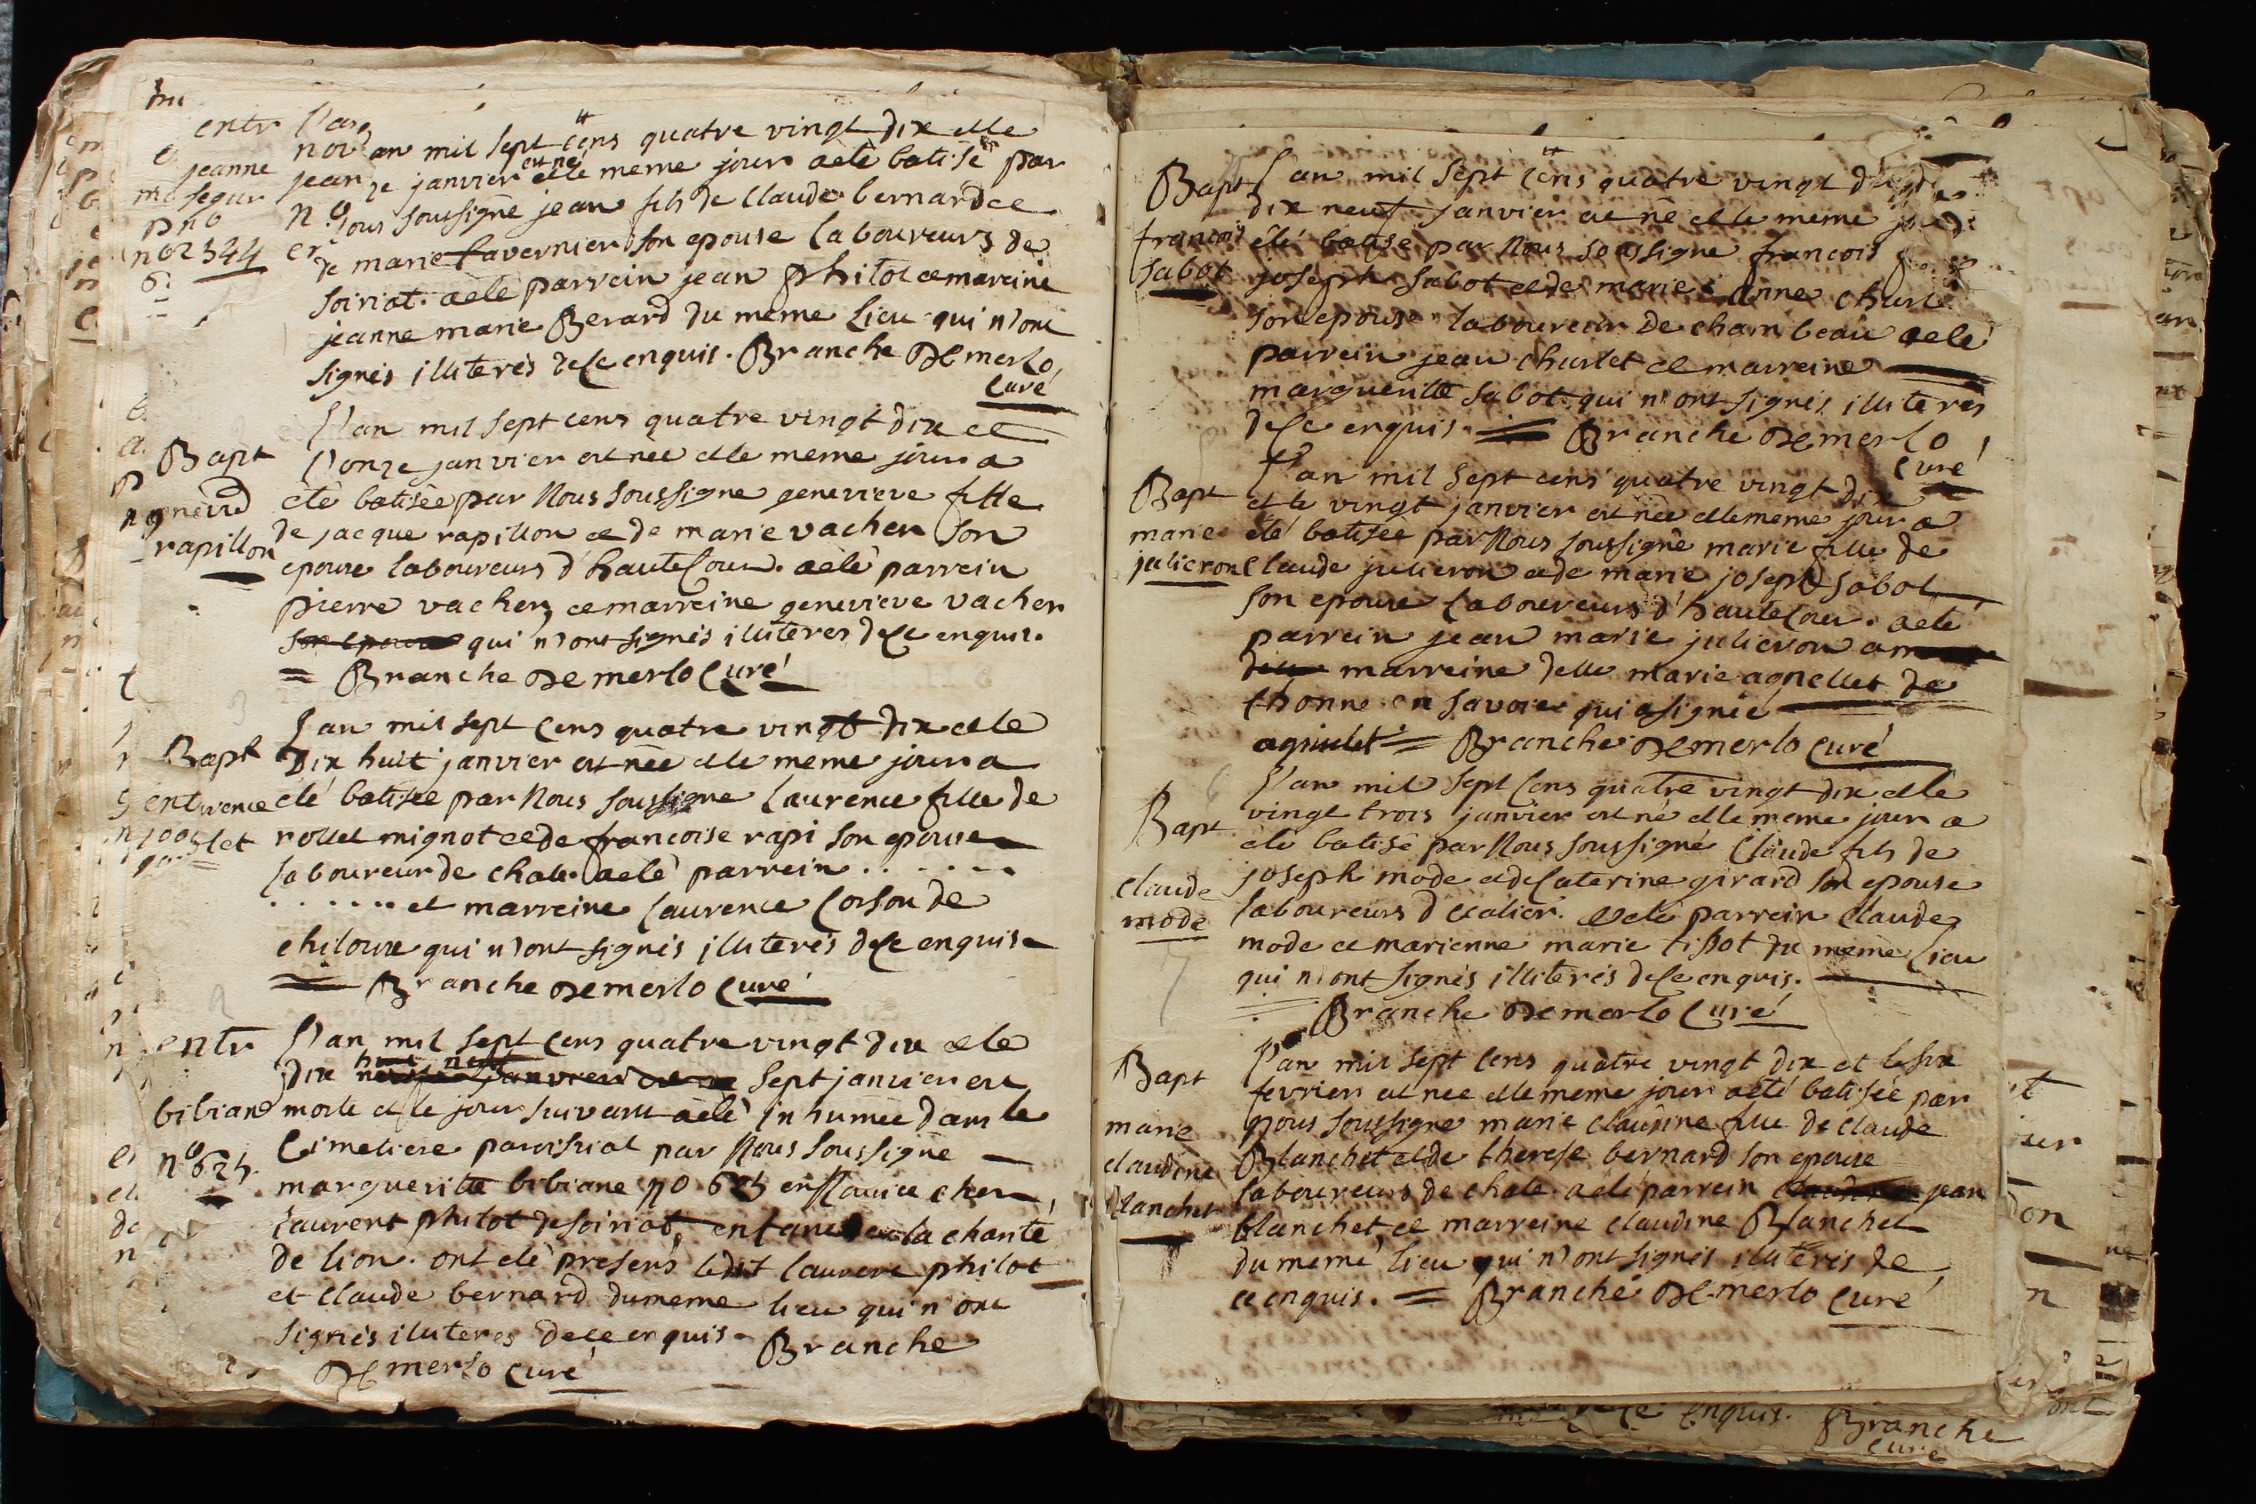 an mil sept cens quatre vingt dix et le
janvier est né et le meme jour a etè batisé par
Nous soussigné jean fils de Claude bernard et
de marie favernier son epouse laboureurs de
soiriat. a etè parrein jean philot et mareine
jeanne marie Berard du meme Lieu qui n'ont
signés illiterés de ce enquis. Branche Demerlo
Curé
L'an mil sept cens quatre vingt dix et
Bapt
l'onze janvier est née et le meme jour a
été batisée par Nous soussigné genevieve fille
de jacque rapillon et de marie vacher son
rapillon
epouse laboureurs d'hautecour. a etè parrein
pierre vacher et marreine genevieve vacher
son epouse qui n'ont signés illiteres de ce enquis.
= Branche Demerlo Curé
L'an mil sept cens quatre vingt dix et le
Bapt
Dix huit janvier est née et le meme jour a
eté batisée par Nous soussigné Laurence fille de
rollet mignot et de francoise rapi son epouse
laboureur de chale. a etè parrein . . . . . .
. . . . . . et marreine Laurence Corson de
chiloux qui n'ont signés illiterés de ce enquis
= Branche Demerlo Curé
entr
L'an mil sept cens quatre vingt dix et le
Dix sept janvier est
bibiane
morte et le jour suivant a etè inhumée dans le
Cimetiere paroissial par Nous soussigné
no 625.
marguerite bibiane no 625 en nourice chez
laurent philot de soiriat, enfant de la charité
de lion. ont eté presens ledit laurent philot
et Claude bernard du meme lieu qui n'ont
signés illiteres de ce enquis. Branche
Demerlo Curé
Bapt
L'an mil sept cens quatre vingt dix
dix neuf janvier est né et le meme
francois
sabot
été batisé par Nous soussigné francois
joseph sabot et de marie anne churlet
son epouse laboureur de chambeau a eté
parrein jean churlet et marreine
marguerite sabot qui n'ont signés illiterés
de ce enquis. = Branche Demerlo
Curé
Bapt
L'an mil sept cens quatre vingt dix
et le vingt janvier est née et le meme jour a
marie
été batisée par Nous soussigné marie fille de
julieron
Claude julieron et de marie joseph sabot
son epouse laboureurs d'hautecour. a eté
parrein jean marie julieron et
marreine delle marie agnellet de
thonne en savoie qui a signée
agniellet = Branche Demerlo Curé
L'an mil sept cens quatre vingt dix et le
Bapt
vingt trois janvier est né et le meme jour a
été batisé par Nous soussigné Claude fils de
claude
mode
joseph mode et de Caterine girard son epouse
laboureurs d'etalier. a eté parrein Claude
mode et marienne marie tissot du meme lieu
qui n'ont signés illiterés de ce enquis.
= Branche Demerlo Curé
Bapt
L'an mil sept cens quatre vingt dix et le six
fevrier est née et le meme jour a eté batisée par
marie
claudine
blanchet
Nous soussigné marie claudine fille de Claude
Blanchet et de therese bernard son epouse
laboureurs de chale. a eté parrein jean
blanchet, et marreine claudine Blanchet
du meme lieu qui n'ont signés illiterés de
ce enquis. = Branche Demerlo Curé
enquis. Branche
Curé